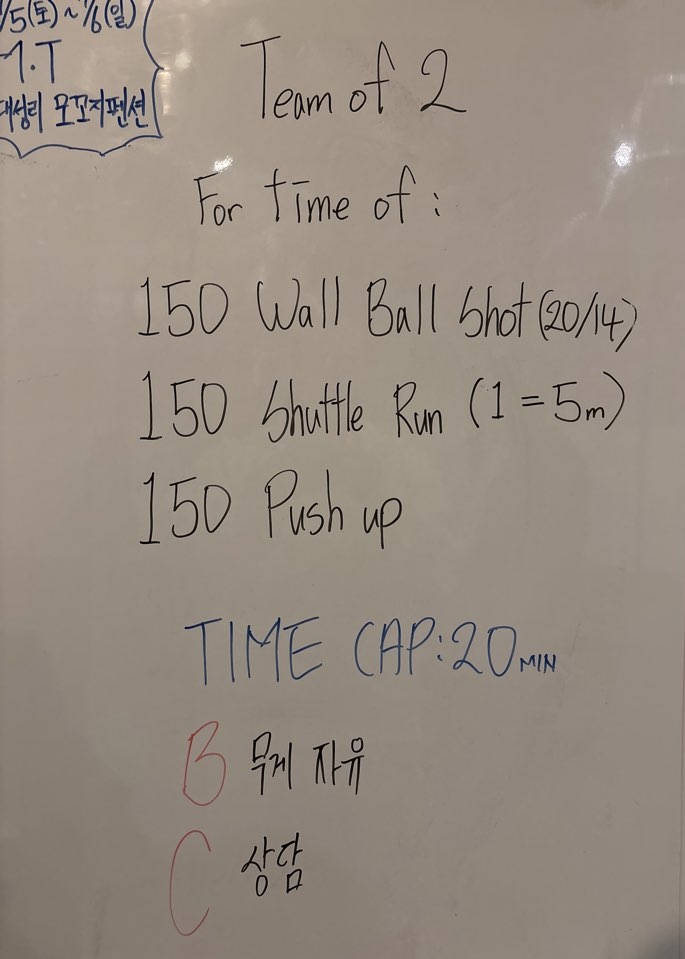 /5(토)~7/6(일)
M.T
대성리 모꼬지펜션
Team of 2
For time of :
150 Wall Ball Shot (20/14)
150 Shuttle Run (1=5m)
150 Push up
TIME CAP:20 MIN
B 무게 자유
C 상담